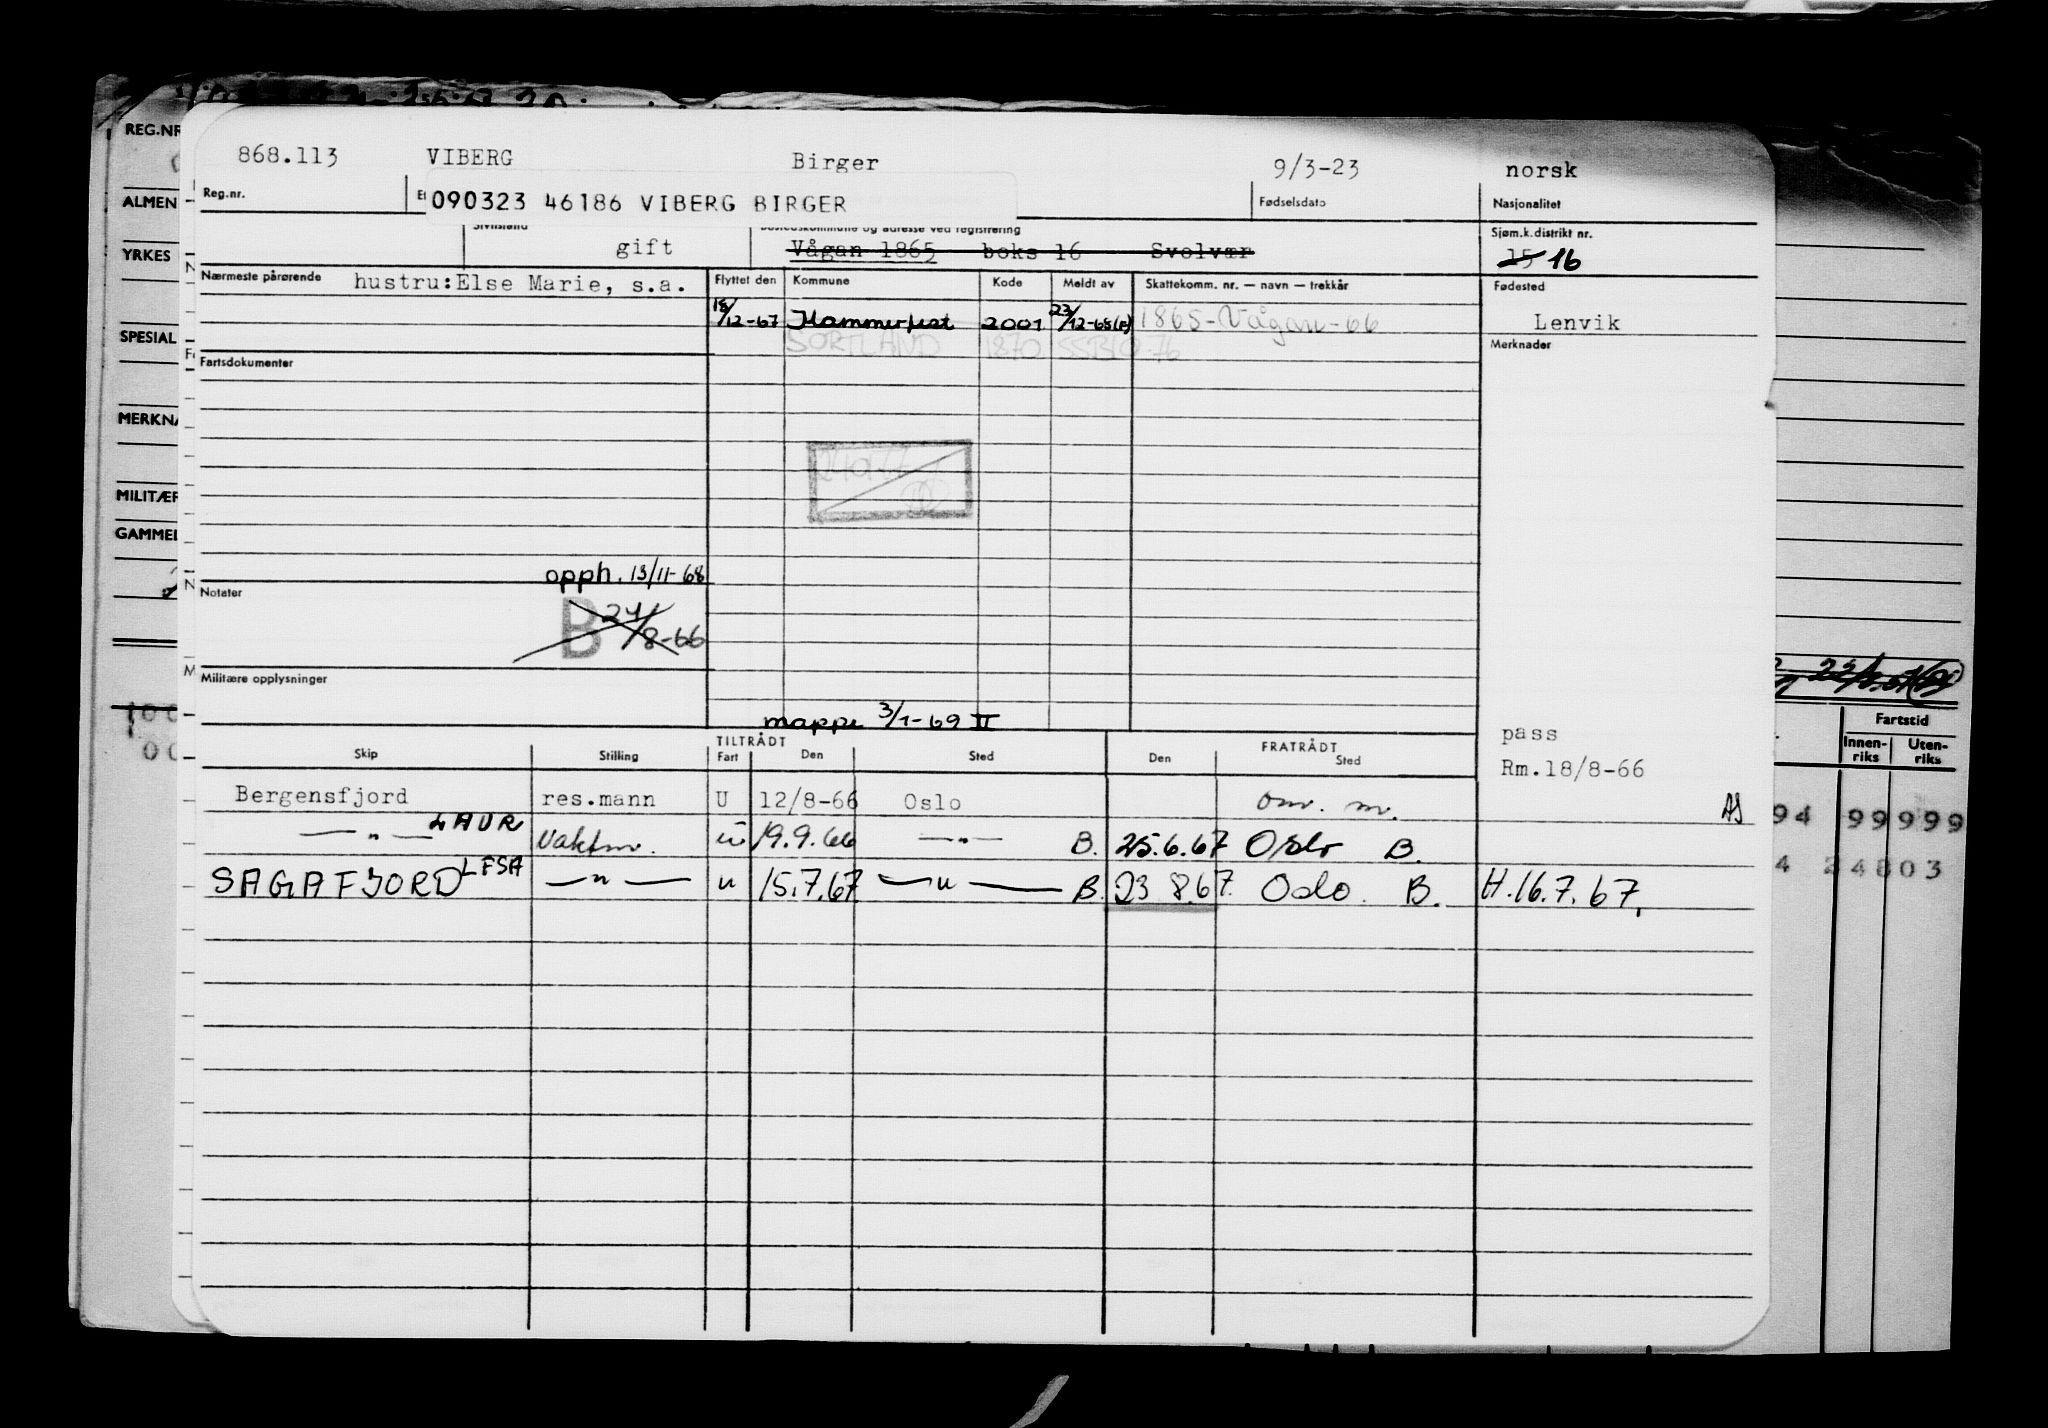 REG.NR
868.113 VIBERG Birger 9/3-23 norsk
Reg.nr. Fødselsdato Nasjonalitet
090323 46186 VIBERG BIRGER
ALMEN
Sivilstand Bostedskommune og adresse ved registrering Sjøm.k.distrikt nr.
gift Vågan 1865 boks 16 Svolvær 15 16
YRKES
Nærmeste pårørende hustru:Else Marie, s.a. Flyttet den Kommune Kode Meldt av Skattekomm. nr. — navn — trekkår Fødested
/12-67 Hammerfest 2001 1865-Vågan-66 Lenvik
SORTLAND 1870 Merknader
SPESIAL
Fartsdokumenter
MERKNA
MILITÆR
GAMMEL
opph. 13/11-68
Notater
B 24/8-66
Militære opplysninger
mappe 3/1-69 II
TILTRÅDT FRATRÅDT pass
Skip Stilling Fart Den Sted Den Sted
Rm.18/8-66
Fartstid
Innen-riks Uten-riks
Bergensfjord res.mann U 12/8-66 Oslo omv. m. AJ
— " — LAUR Vaktm. u 19.9.66 — " — B. 25.6.67 Oslo B.
SAGAFJORD LFSA — " — u 15.7.67 — " — B. 23 8.67. Oslo. B. H.16.7.67.
94 99 999